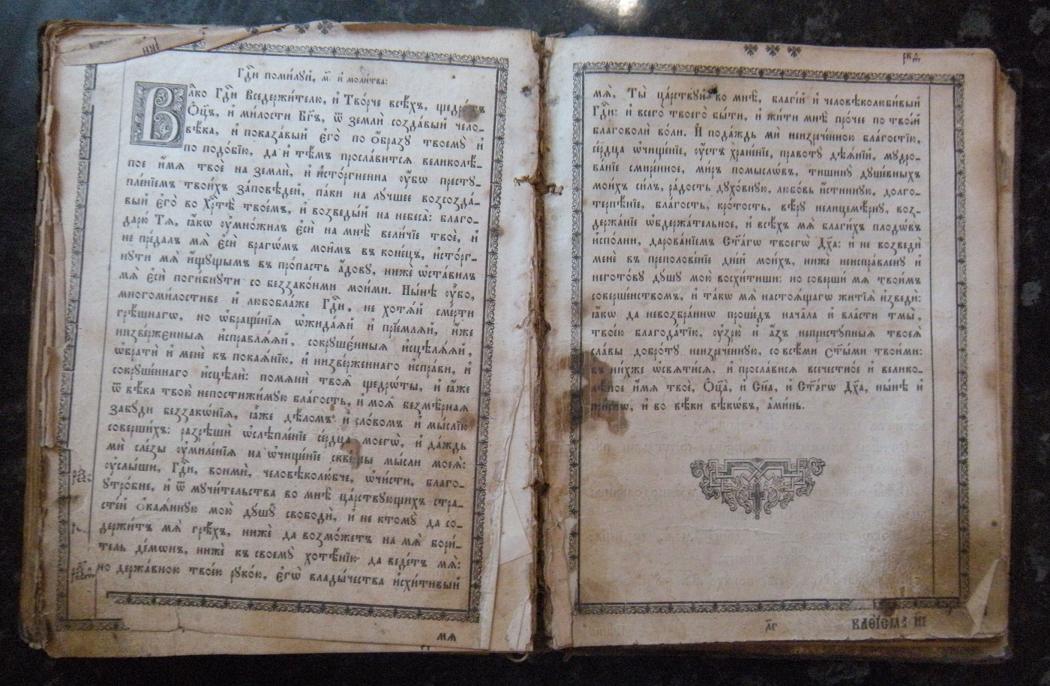 Гдⷭ҇и поми́лꙋй, м҃. и҆ моли́тва:
Влⷣко Гдⷭ҇и Вседержи́телю, и҆ Тво́рче всѣ́хъ, щедро́тъ
Ѻ҆ц҃ъ, и҆ ми́лости Бг҃ъ, ѿ землѝ созда́вый чело-
вѣ́ка, и҆ показа́вый є҆го̀ по ѻ҆́бразꙋ твоемꙋ̀ и҆
по подо́бїю, да и҆ тѣ́мъ просла́витсѧ великолѣ́-
пое и҆́мѧ твоѐ на землѝ, и҆ и҆сто́ргнена ᲂу҆́бѡ престꙋ-
пле́нїемъ твои́хъ за́повѣдей, па́ки на лꙋ́чшее возсозда́-
вый є҆го̀ во Хрⷭ҇тѣ̀ твое́мъ, и҆ возведы́й на небеса̀: благо-
дарю̀ Тѧ̀, ꙗ҆́кѡ ᲂу҆мно́жилъ є҆сѝ на мнѣ̀ вели́чїе твоѐ, и҆
не пре́далъ мѧ̀ є҆сѝ врагѡ́мъ мои̑мъ въ коне́цъ, и҆сто́рг-
нꙋти мѧ̀ и҆́щꙋщымъ въ про́пасть а҆́довꙋ, нижѐ ѡ҆ста́вилъ
мѧ̀ є҆сѝ поги́бнꙋти со беззако́ньми мои́ми. Ны́нѣ ᲂу҆̀бо,
многоми́лостиве и҆ любобла́же Гдⷭ҇и, не хотѧ́й сме́рти
грѣ́шнагѡ, но ѡ҆браще́нїѧ ѡ҆жида́ѧй и҆ прїе́млѧй, и҆́же
низве́рженныѧ и҆справлѧ́ѧй, сокрꙋше́нныѧ и҆сцѣлѧ́ѧй,
ѡ҆братѝ и҆ менѐ къ покаѧ́нїю, и҆ низве́рженнаго и҆спра́ви, и҆
сокрꙋше́ннаго и҆сцѣлѝ: помѧнѝ твоѧ̑ щедрѡ́ты, и҆ ꙗ҆́же
ѿ вѣ́ка твою̀ непостижи́мꙋю бла́гость, и҆ моѧ̑ безмѣ̑рнаѧ
забꙋ́ди беззакѡ́нїѧ, ꙗ҆̀же дѣ́ломъ и҆ сло́вомъ и҆ мы́слїю
соверши́хъ: разрѣшѝ ѡ҆слѣпле́нїе се́рдца моегѡ̀, и҆ да́ждь
мѝ сле́зы ᲂу҆миле́нїѧ на ѡ҆чище́нїе скве́рны мы́сли моеѧ̀:
ᲂу҆слы́ши, Гдⷭ҇и, вонмѝ, человѣколю́бче, ѡ҆чи́сти, благо-
ᲂу҆тро́бне, и҆ ѿ мꙋчи́тельства во мнѣ̀ ца́рствꙋющихъ стра-
сте́й ѻ҆каѧ́ннꙋю мою̀ дꙋ́шꙋ свободѝ, и҆ не ктомꙋ̀ да со-
держи́тъ мѧ̀ грѣ́хъ, нижѐ да возмо́жетъ на мѧ̀ бори́-
тель де́мѡнъ, нижѐ къ своемꙋ̀ хотѣ́нїю да веде́тъ мѧ̀:
но держа́вною твое́ю рꙋко́ю, є҆гѡ̀ влады́чества и҆схи́тивый
мѧ̀
рк҃д
мѧ̀. Ты̀ ца́рствꙋй во мнѣ̀, благі́й и҆ человѣколюби́вый
Гдⷭ҇и: и҆ всего̀ твоего̀ бы́ти, и҆ жи́ти мнѣ̀ про́чее по твое́й
благоволѝ во́ли. И҆ пода́ждь мѝ неизрече́нною благосты́нею,
се́рдца ѡ҆чище́нїе, ᲂу҆́стъ хране́нїе, правотꙋ̀ дѣѧ́нїй, мꙋдро-
ва́нїе смире́нное, ми́ръ помыслѡ́въ, тишинꙋ̀ дꙋше́вныхъ
мои́хъ си́лъ, ра́дость дꙋхо́внꙋю, любо́вь и҆́стиннꙋю, долго-
терпѣ́нїе, бла́гость, кро́тость, вѣ́рꙋ нелицемѣ́рнꙋ, воз-
держа́нїе ѡ҆бдержа́тельное, и҆ всѣ́хъ мѧ̀ благи́хъ плодѡ́въ
и҆спо́лни, дарова́нїемъ Ст҃а́гѡ твоегѡ̀ Дх҃а: и҆ не возведѝ
менѐ въ преполове́нїе дні́й мои́хъ, нижѐ неиспра́вленꙋ и҆
негото́вꙋ дꙋ́шꙋ мою̀ восхи́тиши: но совершѝ мѧ̀ твои́мъ
соверше́нствомъ, и҆ та́кѡ мѧ̀ настоѧ́щагѡ житїѧ̀ и҆зведѝ:
ꙗ҆́кѡ да невозбра́ннѡ проше́дъ нача̑ла и҆ вла̑сти тмы̀,
твое́ю благода́тїю, ᲂу҆зрю̀ и҆ а҆́зъ непристꙋ́пныѧ твоеѧ̀
сла́вы добро́тꙋ неизрече́ннꙋю, со всѣ́ми ст҃ы́ми твои́ми:
въ ни́хже ѡ҆свѧти́сѧ, и҆ просла́висѧ всечестно́е и҆ велико-
лѣ́пое и҆́мѧ твоѐ, Ѻ҆ц҃а̀, и҆ Сн҃а, и҆ Ст҃а́гѡ Дх҃а, ны́нѣ и҆
при́снѡ, и҆ во вѣ́ки вѣкѡ́въ, а҆ми́нь.
л҃г
каѳі́сма и҃і